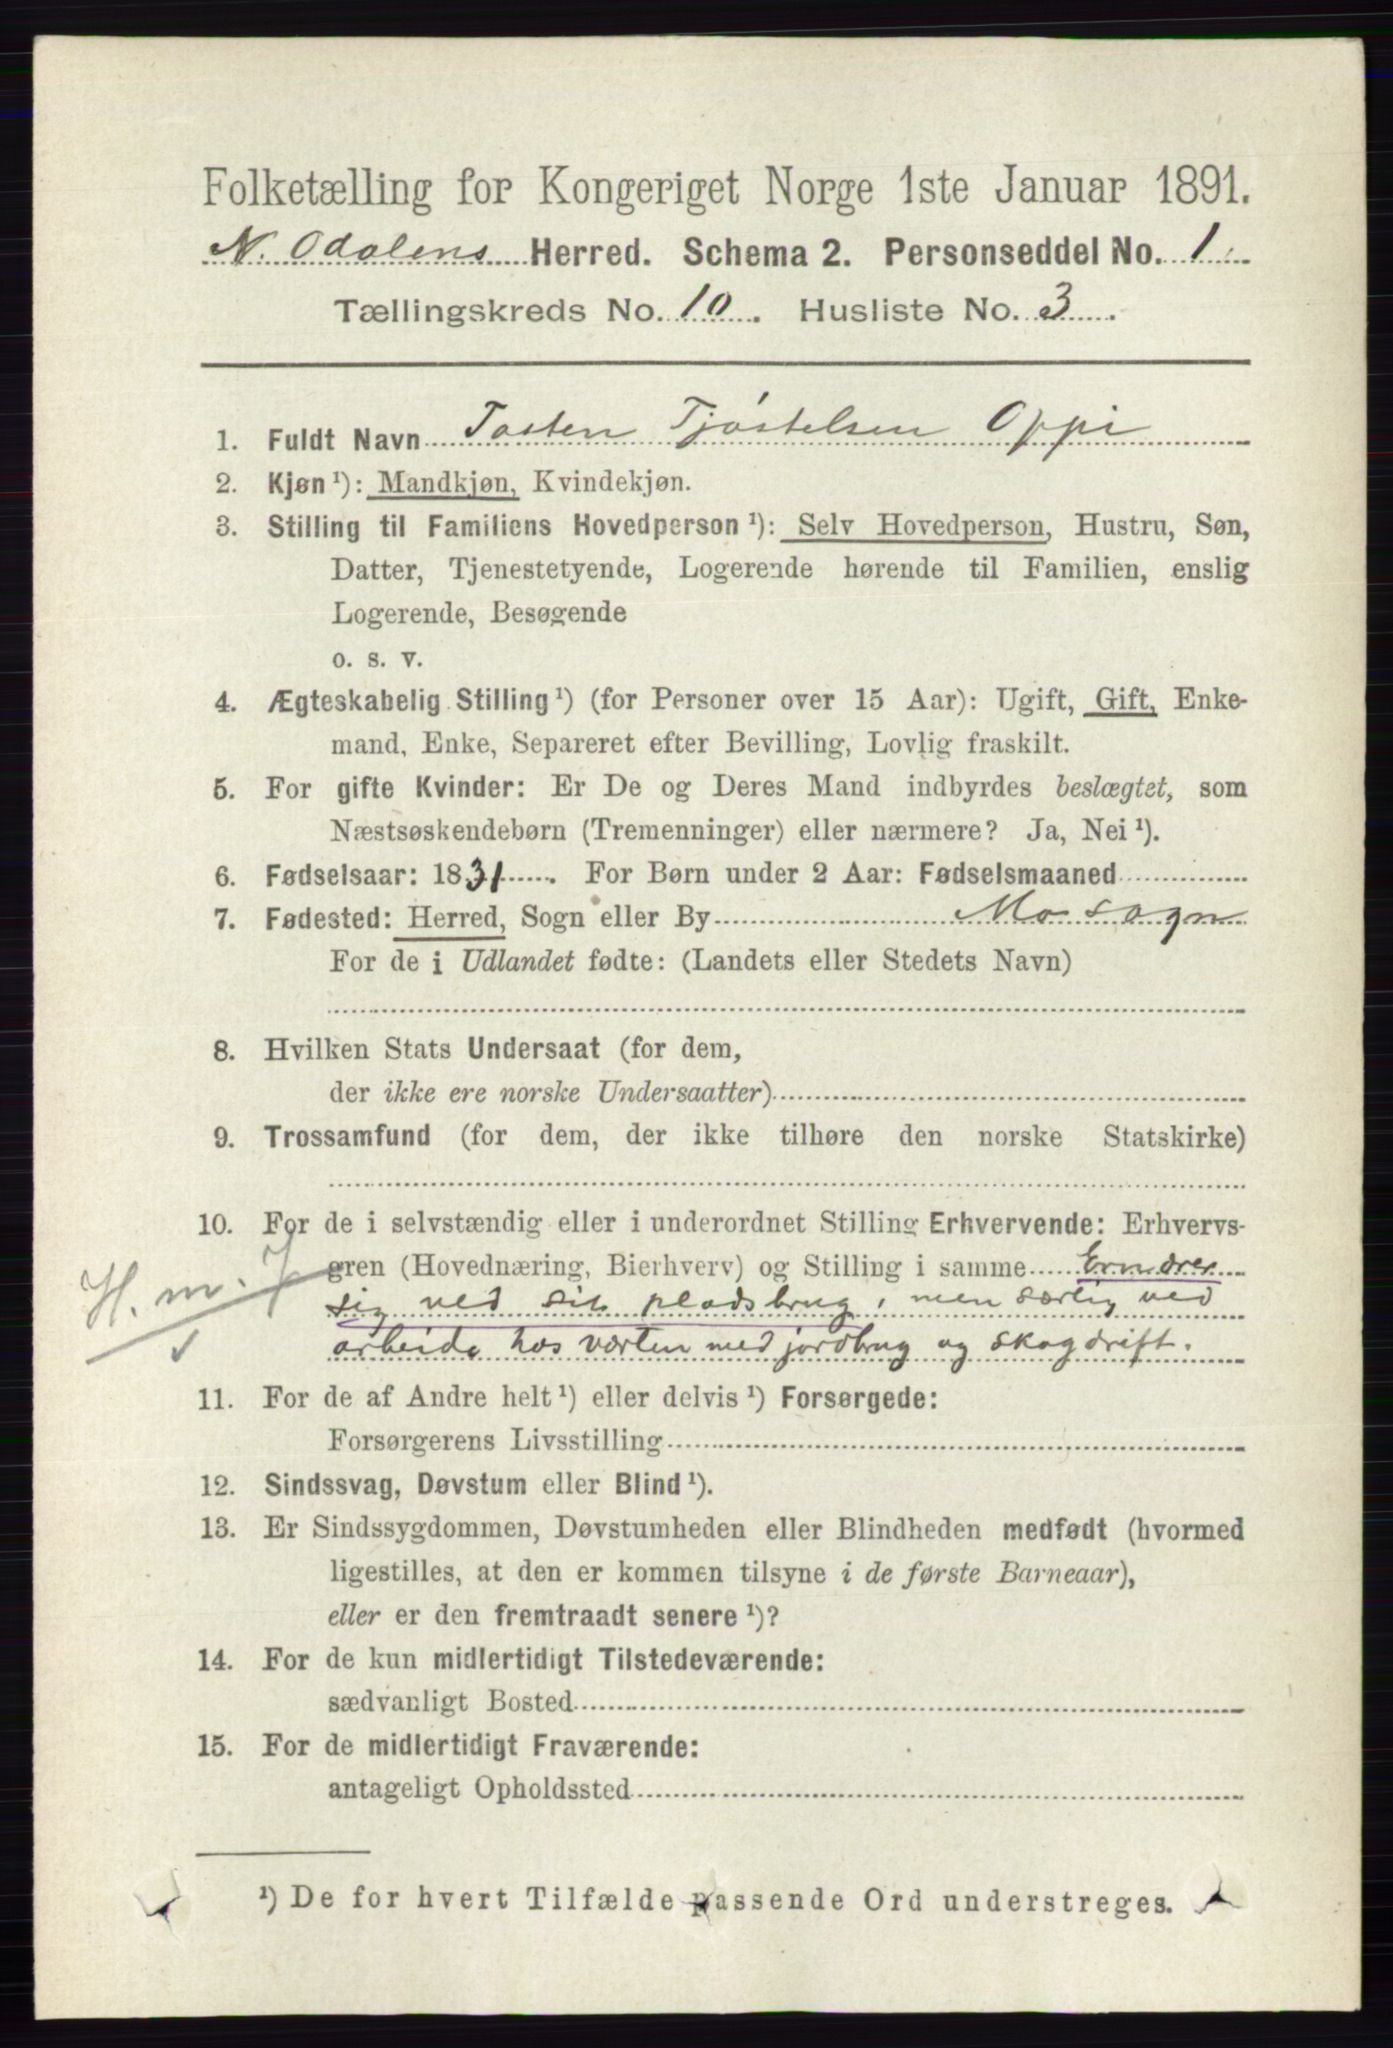 Folketælling for Kongeriget Norge 1ste Januar 1891.
N. Odalens Herred. Schema 2. Personseddel No. 1.
Tællingskreds No. 10. Husliste No. 3.
1. Fuldt Navn Tosten Tjøstelsen Oppi
2. Kjøn ¹): Mandkjøn, Kvindekjøn.
3. Stilling til Familiens Hovedperson ¹): Selv Hovedperson, Hustru, Søn,
Datter, Tjenestetyende, Logerende hørende til Familien, enslig
Logerende, Besøgende
o. s. v.
4. Ægteskabelig Stilling ¹) (for Personer over 15 Aar): Ugift, Gift, Enke-
mand, Enke, Separeret efter Bevilling, Lovlig fraskilt.
5. For gifte Kvinder: Er De og Deres Mand indbyrdes beslægtet, som
Næstsøskendebørn (Tremenninger) eller nærmere? Ja, Nei ¹).
6. Fødselsaar: 1831. For Børn under 2 Aar: Fødselsmaaned
7. Fødested: Herred, Sogn eller By Mo sogn
For de i Udlandet fødte: (Landets eller Stedets Navn)
8. Hvilken Stats Undersaat (for dem,
der ikke ere norske Undersaatter)
9. Trossamfund (for dem, der ikke tilhøre den norske Statskirke)
10. For de i selvstændig eller i underordnet Stilling Erhvervende: Erhvervs-
gren (Hovednæring, Bierhverv) og Stilling i samme Ernærer
H. m. 7
sig ved sit pladsbrug, men særlig ved
arbeide hos værten med jordbrug og skogdrift.
11. For de af Andre helt ¹) eller delvis ¹) Forsørgede:
Forsørgerens Livsstilling
12. Sindssvag, Døvstum eller Blind ¹).
13. Er Sindssygdommen, Døvstumheden eller Blindheden medfødt (hvormed
ligestilles, at den er kommen tilsyne i de første Barneaar),
eller er den fremtraadt senere ¹)?
14. For de kun midlertidigt Tilstedeværende:
sædvanligt Bosted
15. For de midlertidigt Fraværende:
antageligt Opholdssted
¹) De for hvert Tilfælde passende Ord understreges.